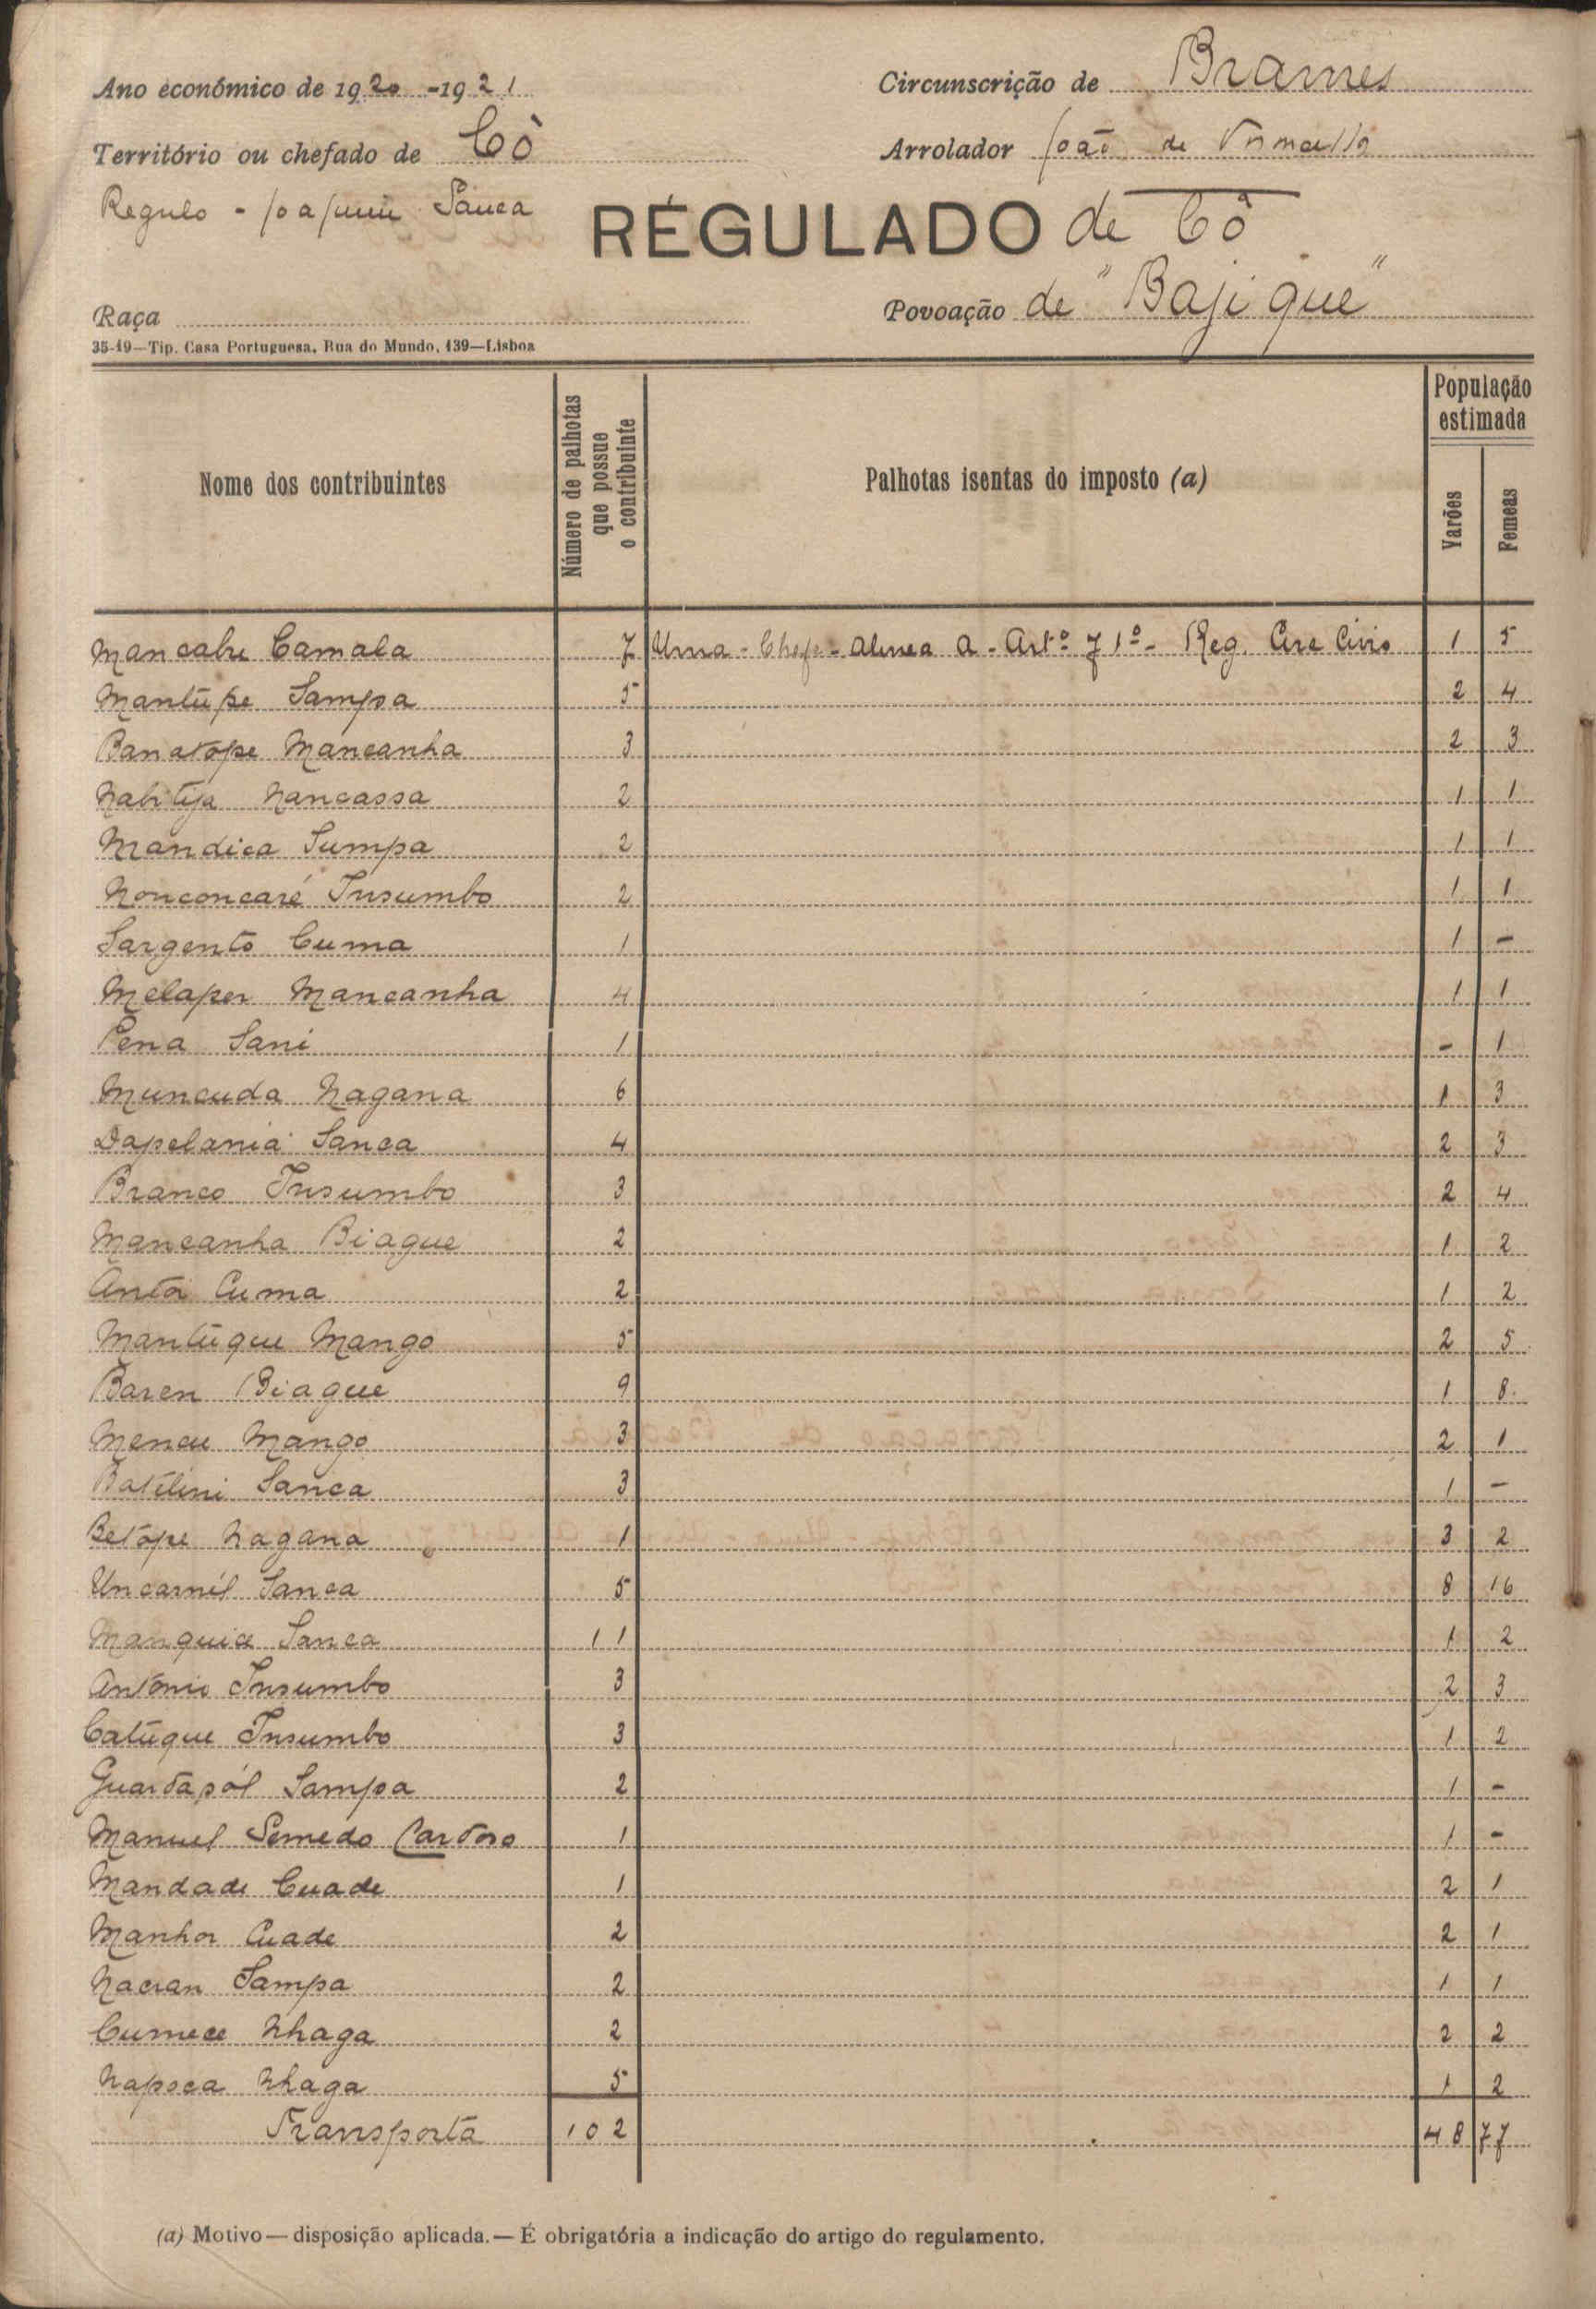 Ano económico de 1920-1921
Circunscrição de Brames
Território ou chefado de Có
Arrolador João de
Regulo - Joaquim Sanca
RÉGULADO de Có
Raça
Povoação de "Bajique"
35-19—Tip. Casa Portuguesa, Rua do Mundo, 139—Lisboa
Nome dos contribuintes
Número de palhotas que possue o contribuinte
Palhotas isentas do imposto (a)
População estimada
Varões
Femeas
Mancabu Camala 7 Uma - Chefe - alinea a - Artº 71º - Reg. Circ Civis 1 5
Mantúpe Sampa 5 2 4
Banatope Mancanha 3 2 3
Nabitja Nancassa 2 1 1
Mandica Sumpa 2 1 1
Nonconcaré Insumbo 2 1 1
Sargento Cuma 1 1 -
Melaper Mancanha 4 1 1
Pena Sani 1 - 1
Muncuda Nagana 6 1 3
Dapelania Sanca 4 2 3
Branco Insumbo 3 2 4
Mancanha Biague 2 1 2
Antoi Cuma 2 1 2
Mantúque Mango 5 2 5
Baren Biague 9 1 8
Mencu Mango 3 2 1
Batilini Sanca 3 1 -
Betope Nagana 1 3 2
Uncarnél Sanca 5 8 16
Manquia Sanca 11 1 2
António Insumbo 3 2 3
Catúque Insumbo 3 1 2
Guardasól Sampa 2 1 -
Manuel Semedo Cardoso 1 1 -
Mandade Cuade 1 2 1
Manhor Cuade 2 2 1
Nacran Sampa 2 1 1
Cumece Nhaga 2 2 2
Napoca Nhaga 5 1 2
Transporta 102 48 77
(a) Motivo—disposição aplicada.—É obrigatória a indicação do artigo do regulamento.